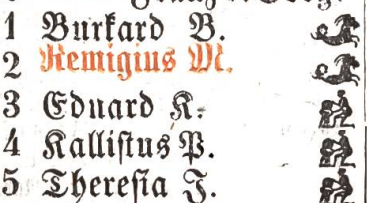 1 Burkard B.
2 Remigius M.
3 Eduard K.
4 Kallistus P.
5 Theresia J.